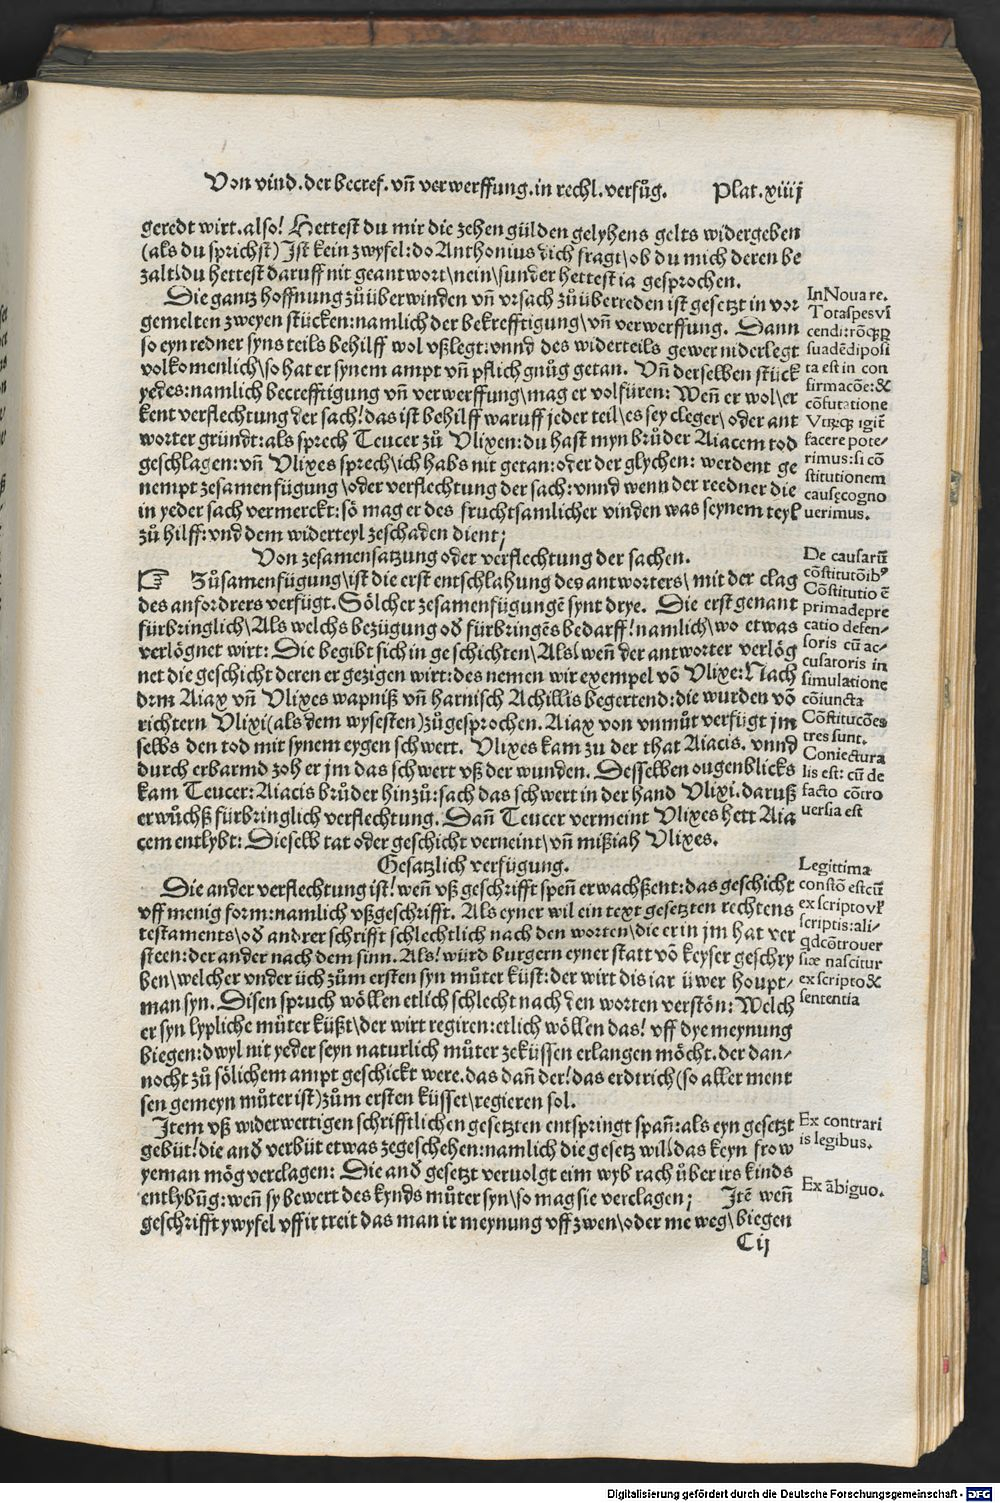 Von vind. der becref. vñ verwerffung. in rechl. verfůg. Plat. xiiij
geredt wirt. also! Hettest du mir die zehen gülden gelyhens gelts widergeben
(als du sprichst) Jst kein zwyfel: do Anthonius dich fragt\ ob du mich deren be
zalt\ du hettest daruff nit geantwort\ nein\ sunder hettest ia gesprochen.
Die gantz hoffnung zů überwinden vñ vrsach zů überreden ist gesetzt in vor
gemelten zweyen stücken: namlich der bekrefftigung\ vñ verwerffung. Dann
so eyn redner syns teils behilff wol vßlegt: vnnd des widerteils gewer niderlegt
volkomenlich\ so hat er synem ampt vñ pflich gnůg getan. Vñ derselben stück
yedes: namlich becrefftigung vñ verwerffung\ mag er volfüren: Weñ er wol\ er
kent verflechtung der sach! das ist behilff waruff jeder teil\ es sey cleger\ oder ant
worter gründt: als sprech Teucer zů Vlixen: du hast myn brůder Aiacem tod
geschlagen: vñ Vlixes sprech\ ich habs nit getan: oder der glychen: werdent ge
nempt zesamenfügung\ oder verflechtung der sach: vnnd wenn der reedner die
in yeder sach vermerckt: so mag er des fruchtsamlicher vinden was seynem teyl
zů hilff: vnd dem widerteyl zeschaden dient;
In Noua re.
Tota spes vī
cendi: rōq̄ꝫ ꝑ
suadēdi posi
ta est in con
firmacōe: &
cōfutatione
Vtrq̄ꝫ igit̄
facere pote-
rimus: si cō
stitutionem
causę cogno
uerimus.
Von zesamensatzung oder verflechtung der sachen.
☞ Zůsamenfügung\ ist die erst entschlahung des antworters\ mit der clag
des anfordrers verfügt. Sölcher zesamenfügungē synt drye. Die erst genant
fürbringlich\ Als welchs bezügung oď fürbringēs bedarff! namlich\ wo etwas
verlögnet wirt: Die begibt sich in geschichten\ Als\ weñ der antworter verlög
net die geschicht deren er gezigen wirt: des nemen wir exempel võ Vlixe: Nach
dem Aiax vñ Vlixes wapniß vñ harnisch Achillis begertend: die wurden võ
richtern Vlixi (als dem wysesten) zůgesprochen. Aiax von vnmůt verfügt jm
selbs den tod mit synem eygen schwert. Vlixes kam zu der that Aiacis. vnnd
durch erbarmd zoh er jm das schwert vß der wunden. Desselben ougenblicks
kam Teucer: Aiacis brůder hinzů: sach das schwert in der hand Vlixi. daruß
erwůchß fürbringlich verflechtung. Dañ Teucer vermeint Vlixes hett Aia
cem entlybt: Dieselb tat oder geschicht verneint\ vñ mißiah Vlixes.
De causarū
cōstitutōibꝰ
Cōstitutio ē
prima depre
catio defen-
soris cū ac-
cusatoris in
simulatione
cōiuncta
Cōstitucōes
tres sunt.
Coniectura
lis est: cū de
facto cōtro
uersia est
Gesatzlich verfügung.
Die ander verflechtung ist! weñ vß geschrifft speñ erwachßent: das geschicht
vff menig form: namlich vßgeschrifft. Als eyner wil ein text gesetzten rechtens
testaments\ oď andrer schrifft schlechtlich nach den worten\ die er in jm hat ver
steen: der ander nach dem sinn. Als! würd burgern eyner statt võ keyser geschry
ben\ welcher vnder üch zům ersten syn můter küst: der wirt dis iar üwer houpt-
man syn. Disen spruch wöllen etlich schlecht nach den worten verstōn: Welch
er syn lypliche můter küßt\ der wirt regiren: etlich wöllen das! vff dye meynung
biegen: dwyl nit yeder seyn naturlich můter zeküssen erlangen möcht. der dan-
nocht zů sölichem ampt geschickt were. das dañ der! das erdtrich (so aller ment
schen gemeyn můter ist) zům ersten küsset\ regieren sol.
Legittima
constō est cū
ex scripto vł
scriptis: ali-
qd cōtrouer
siæ nascitur
ex scripto &
sententia
Jtem vß widerwertigen schrifftlichen gesetzten entspringt spañ: als eyn gesetzt
gebüt! die anď verbüt etwas zegeschehen: namlich die gesetz wil\ das keyn frow
yeman mög verclagen: Die anď gesetzt veruolgt eim wyb rach über irs kinds
entlybūg: weñ sy bewert des kynds můter syn\ so mag sie verclagen; Jtē weñ
geschrifft ywyfel vff ir treit das man ir meynung vff zwen\ oder me weg\ biegen
Ex contrari
is legibus.
Ex ābiguo.
C ij
Digitalisierung gefördert durch die Deutsche Forschungsgemeinschaft - DFG